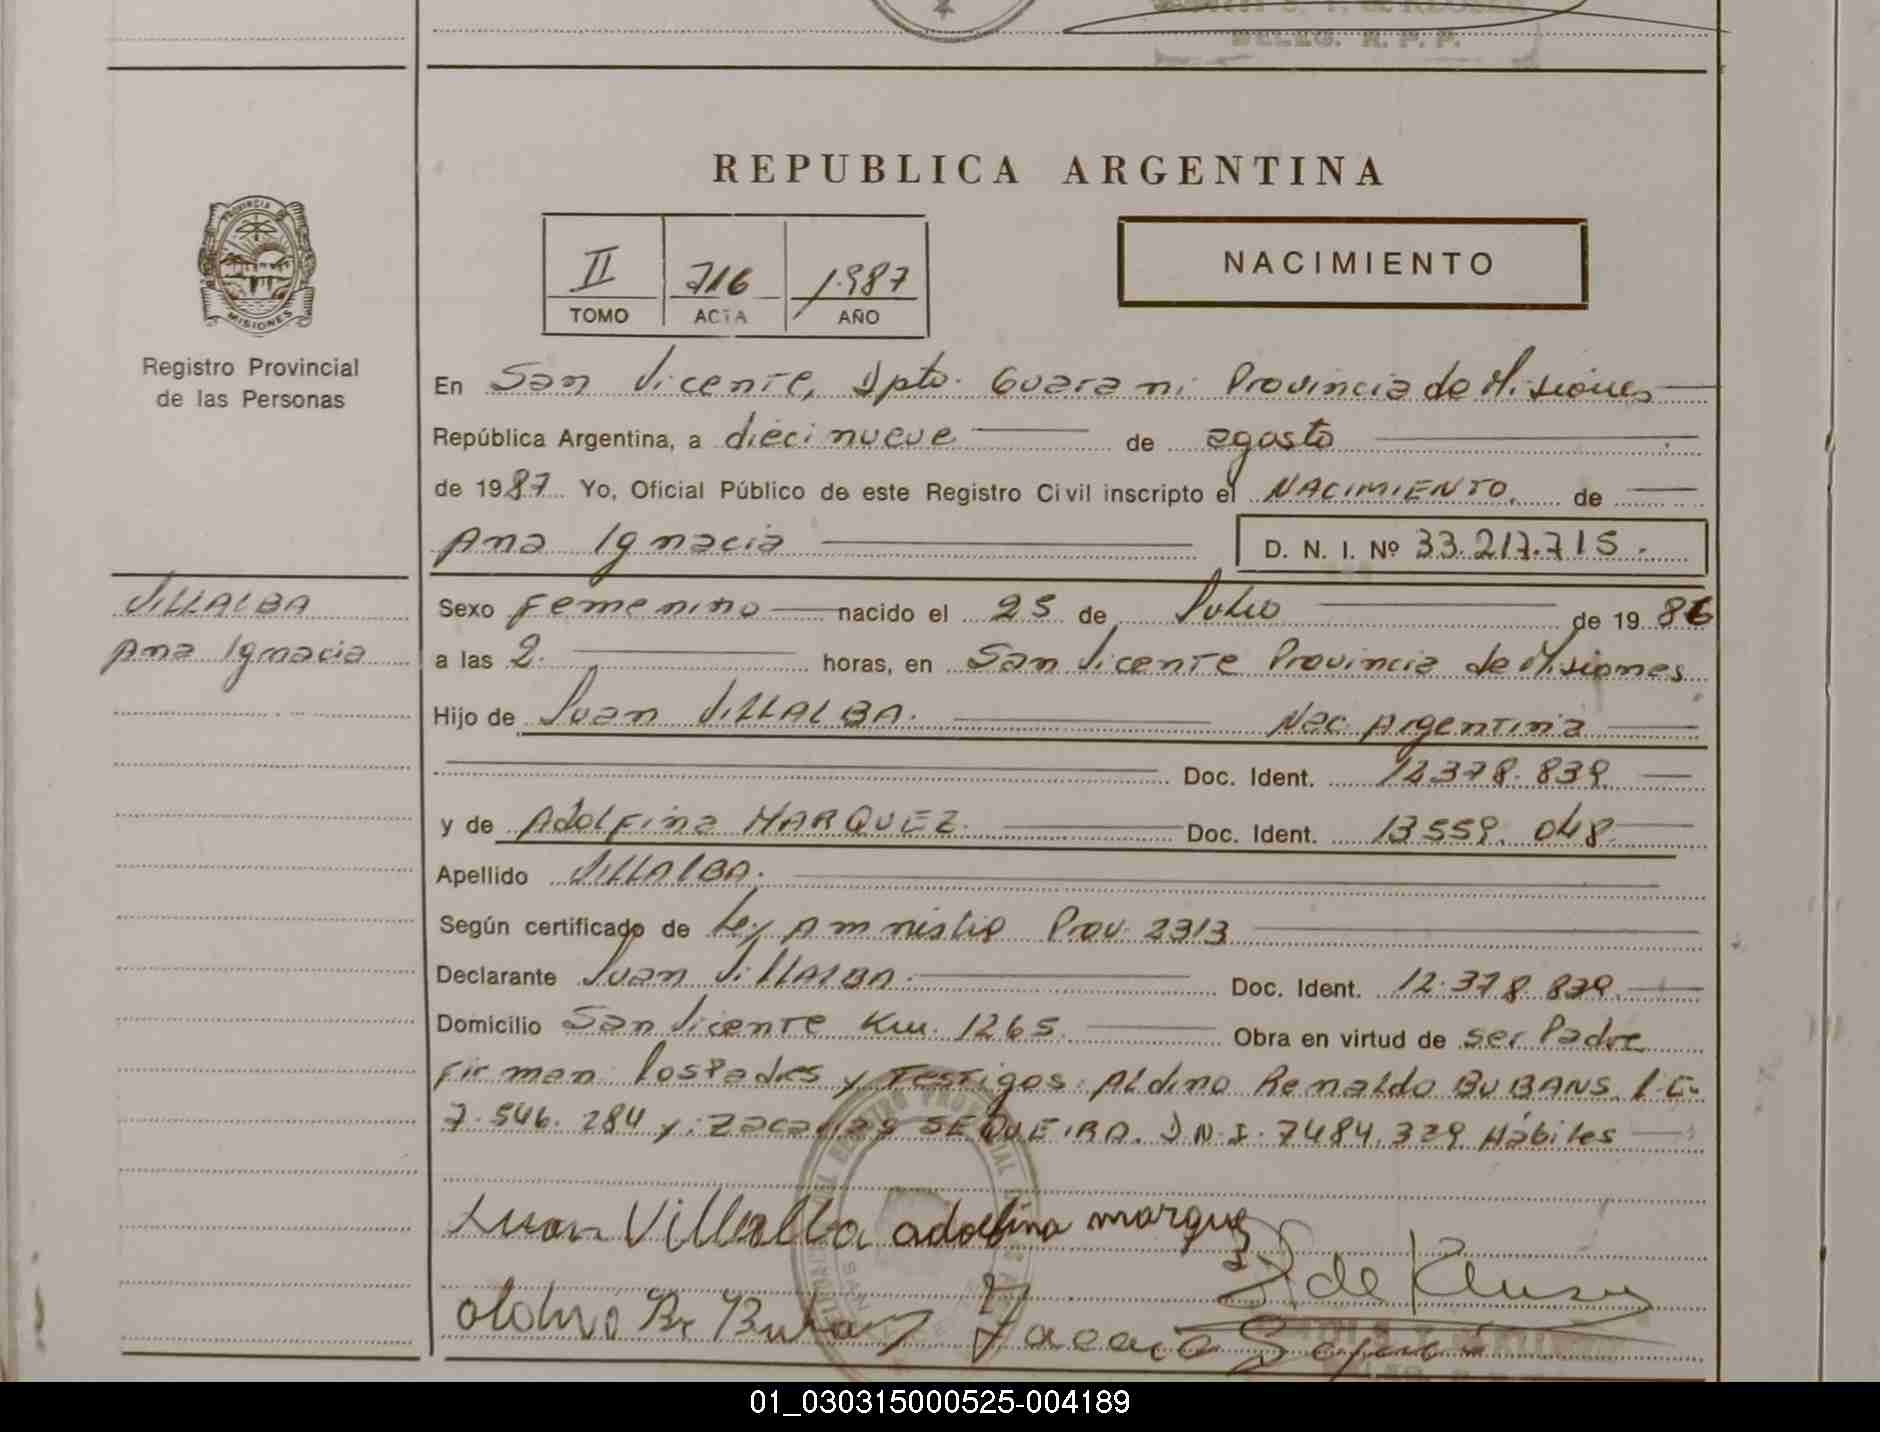 DELEG. R. P. P.
REPUBLICA ARGENTINA
PROVINCIA DE
MISIONES
Registro Provincial
de las Personas
II 716 1.987
TOMO ACTA AÑO
NACIMIENTO
En San Vicente, Dpto. Guarani Provincia de Misiones
República Argentina, a diecinueve de agosto
de 1987 Yo, Oficial Público de este Registro Civil inscripto el NACIMIENTO. de
Ana Ignacia D. N. I. Nº 33.217.715.
VILLALBA
Ana Ignacia
Sexo Femenino nacido el 25 de Julio de 1986
a las 2. horas, en San Vicente Provincia de Misiones
Hijo de Juan VILLALBA. Nac Argentina
Doc. Ident. 12.378.839.
y de Adolfina MARQUEZ. Doc. Ident. 13559.048
Apellido VILLALBA.
Según certificado de Ley Amnistia Prov. 2313
Declarante Juan VILLALBA. Doc. Ident. 12.378.839.
Domicilio San Vicente Km. 1265. Obra en virtud de ser Padre
Firman los Padres y Testigos: Aldino Renaldo BUBANS. L.E.
7.546.284 y: Zacarias SEQUEIRA. D.N.I. 7484.329 Hábiles
Juan Villalba adolfina marquez
01_030315000525-004189